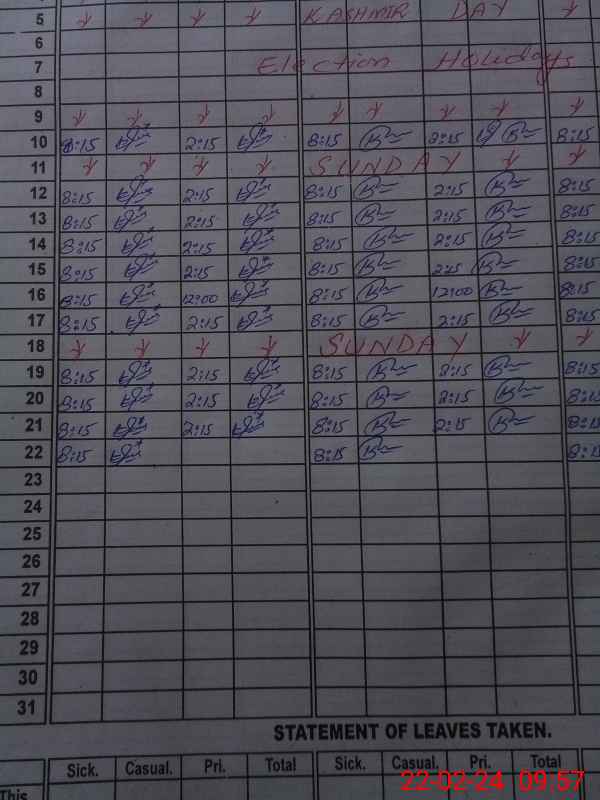 5 KASHMIR DAY
6
7 Election Holidays
8
9
10 8:15 2:15 8:15 2:15 8:15
11 SUNDAY
12 8:15 2:15 8:15 2:15 8:15
13 8:15 2:15 8:15 2:15 8:15
14 8:15 2:15 8:15 2:15 8:15
15 8:15 2:15 8:15 2:15 8:15
16 8:15 12:00 8:15 12:00 8:15
17 8:15 2:15 8:15 2:15 8:15
18 SUNDAY
19 8:15 2:15 8:15 2:15 8:15
20 8:15 2:15 8:15 2:15 8:15
21 8:15 2:15 8:15 2:15 8:15
22 8:15 8:15 8:15
23
24
25
26
27
28
29
30
31
STATEMENT OF LEAVES TAKEN.
Sick. Casual. Pri. Total Sick. Casual. Pri. Total
This
22-02-24 09:57